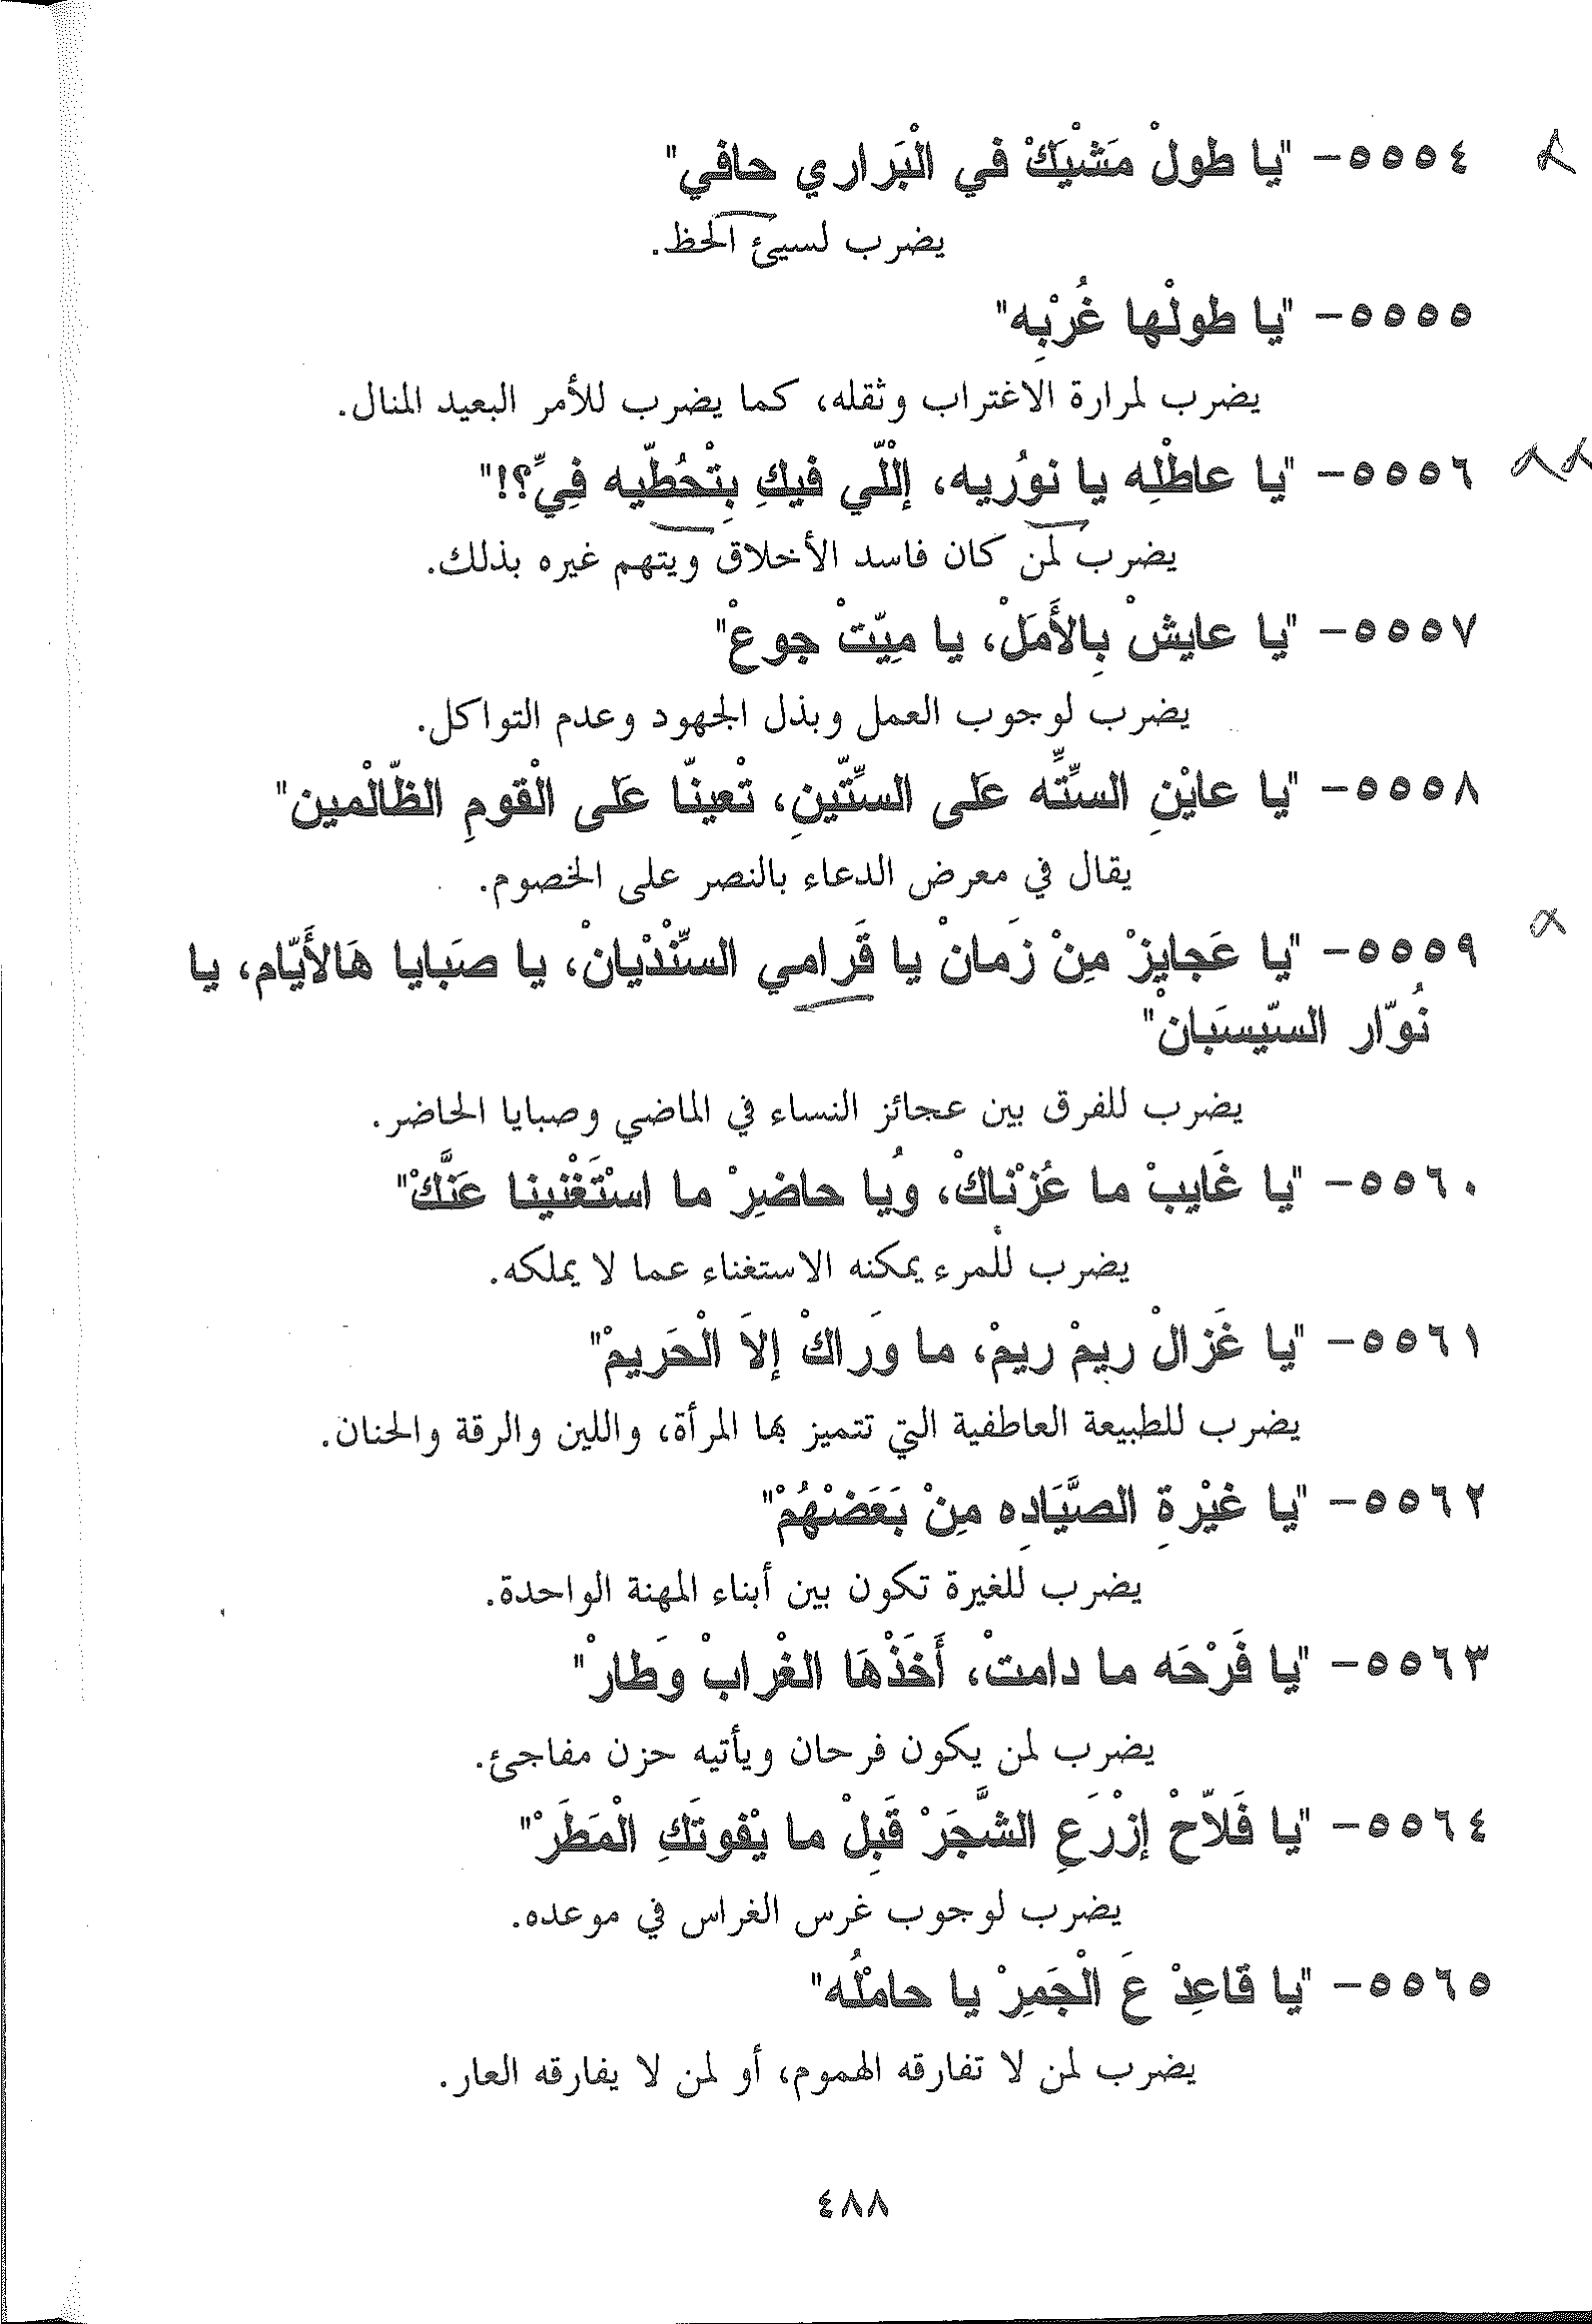 ٥٥٥٤- "يا طولْ مَشْيَكْ في الْبَراري حافي"
يضرب لسيئ الحظ.
٥٥٥٥- "يا طولْها غُرْبِه"
يضرب لمرارة الاغتراب وثقله، كما يضرب للأمر البعيد المنال.
٥٥٥٦- "يا عاطْلِه يا نوُريه، إللّْي فيكِ بِتْحُطّيه فِيِّ؟!"
يضرب لمن كان فاسد الأخلاق ويتهم غيره بذلك.
٥٥٥٧- "يا عايشْ بِالأَمَلْ، يا مِيّتْ جوعْ"
يضرب لوجوب العمل وبذل الجهود وعدم التواكل.
٥٥٥٨- "يا عايْنِ السِّتِّه عَلى السِّتّينِ، تْعينّا عَلى الْقومِ الظّالْمين"
يقال في معرض الدعاء بالنصر على الخصوم.
٥٥٥٩- "يا عَجايزْ مِنْ زَمانْ يا قَرامي السِّنْدْيانْ، يا صَبايا هَالأَيّام، يا
نُوّار السّيسَبانْ"
يضرب للفرق بين عجائز النساء في الماضي وصبايا الحاضر.
٥٥٦٠- "يا غَايبْ ما عُزْناكْ، وُيا حاضِرْ ما اسْتَغْنينا عَنَّكْ"
يضرب للْمرء يمكنه الاستغناء عما لا يملكه.
٥٥٦١- "يا غَزالْ ريمْ ريمْ، ما وَراكْ إلاَ الْحَريمْ"
يضرب للطبيعة العاطفية التي تتميز بها المرأة، واللين والرقة والحنان.
٥٥٦٢- "يا غيْرةِ الصَّيَادِه مِنْ بَعَضْهُمْ"
يضرب للغيرة تكون بين أبناء المهنة الواحدة.
٥٥٦٣- "يا فَرْحَه ما دامتْ، أَخَذْهَا الغْرابْ وَطارْ"
يضرب لمن يكون فرحان ويأتيه حزن مفاجئ.
٥٥٦٤- "يا فَلاّحْ إزْرَعِ الشَّجَرْ قَبِلْ ما يْفوتَكِ الْمَطَرْ"
يضرب لوجوب غرس الغراس في موعده.
٥٥٦٥- "يا قاعِدْ عَ الْجَمِرْ يا حامْلُه"
يضرب لمن لا تفارقه الهموم، أو لمن لا يفارقه العار.
٤٨٨